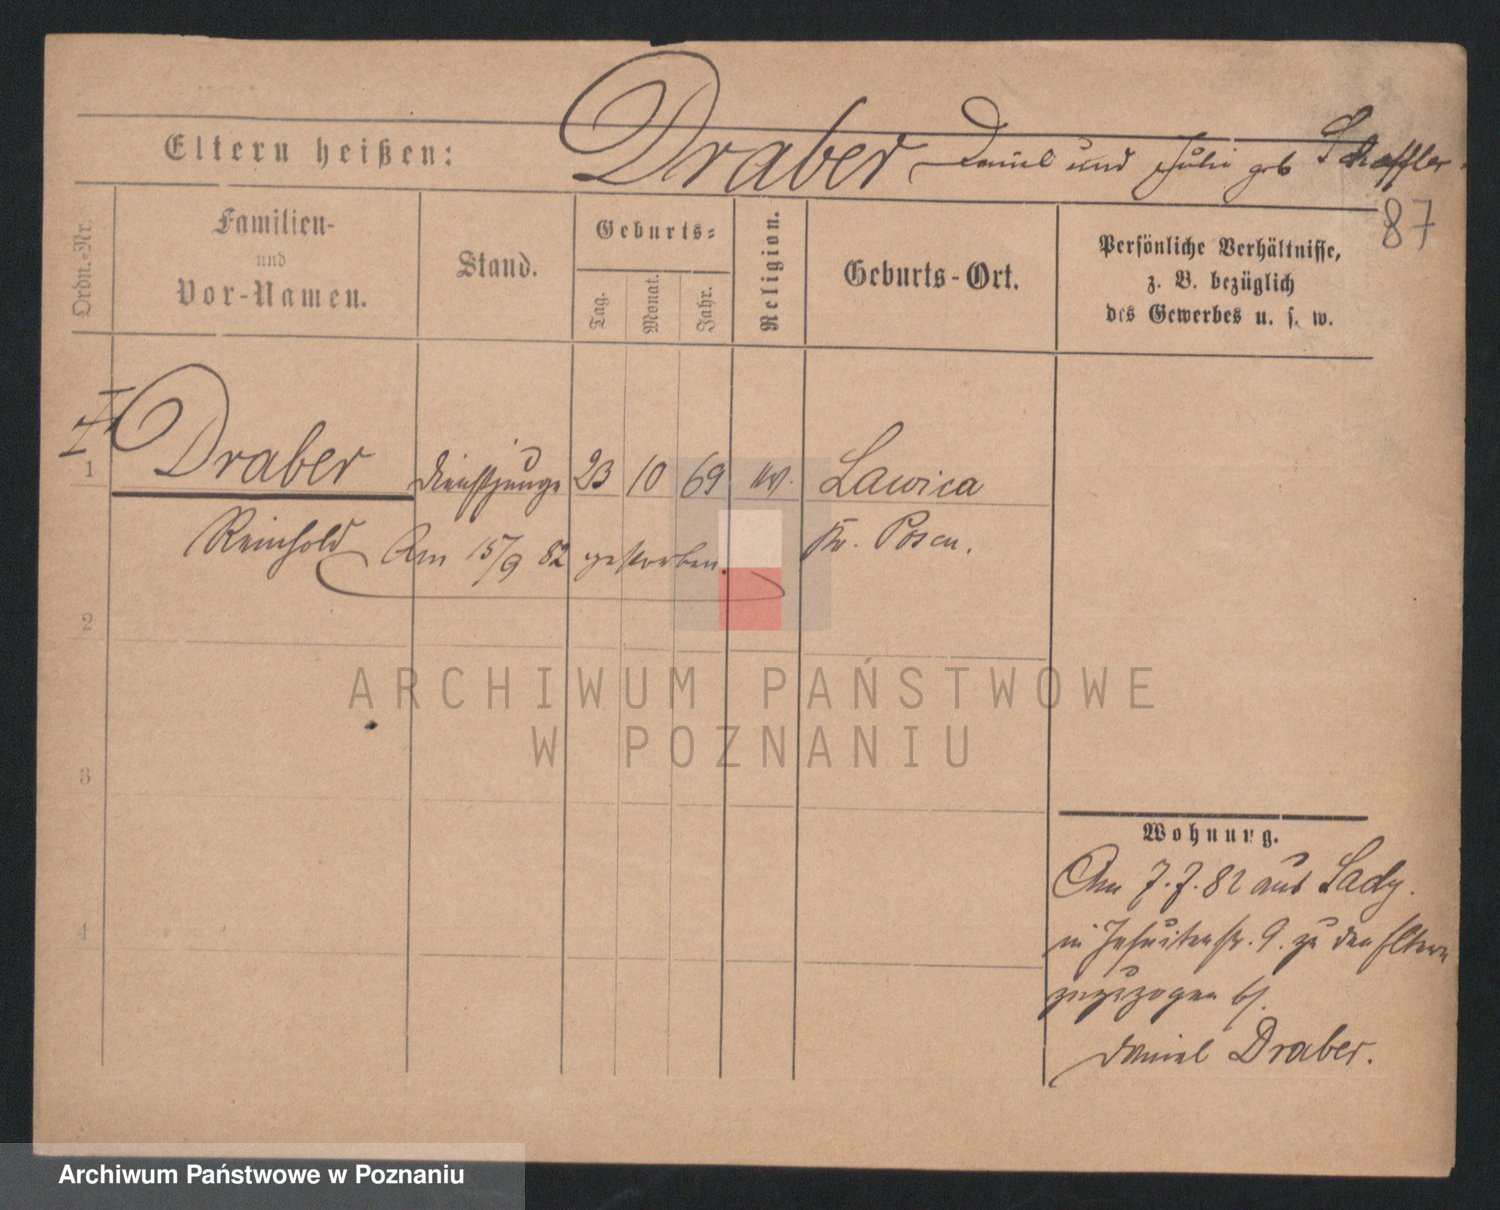 Eltern heißen: Draber Daniel und Julie geb Scheffler
87
Ordn.-Nr.
Familien-
und
Vor-Namen.
Stand.
Geburts-
Tag.
Monat.
Jahr.
Religion.
Geburts-Ort.
Persönliche Verhältnisse,
z. B. bezüglich
des Gewerbes u. s. w.
I
1 Draber Dienstjunge 23 10 69 ev. Lawica
Reinhold Am 15/9 82 gestorben. Kr. Posen.
2
ARCHIWUM PAŃSTWOWE
W POZNANIU
3
Wohnung.
Am 7.7.82 aus Sady.
in Jesuitenstr. 9. zu den Eltern
zugezogen bei
Daniel Draber.
4
Archiwum Państwowe w Poznaniu